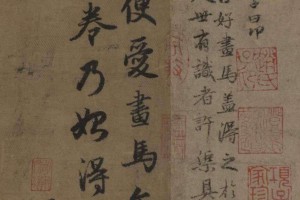 子昂
好畫馬蓋得之於
世有識者許渠具
便愛畫馬
卷乃始得